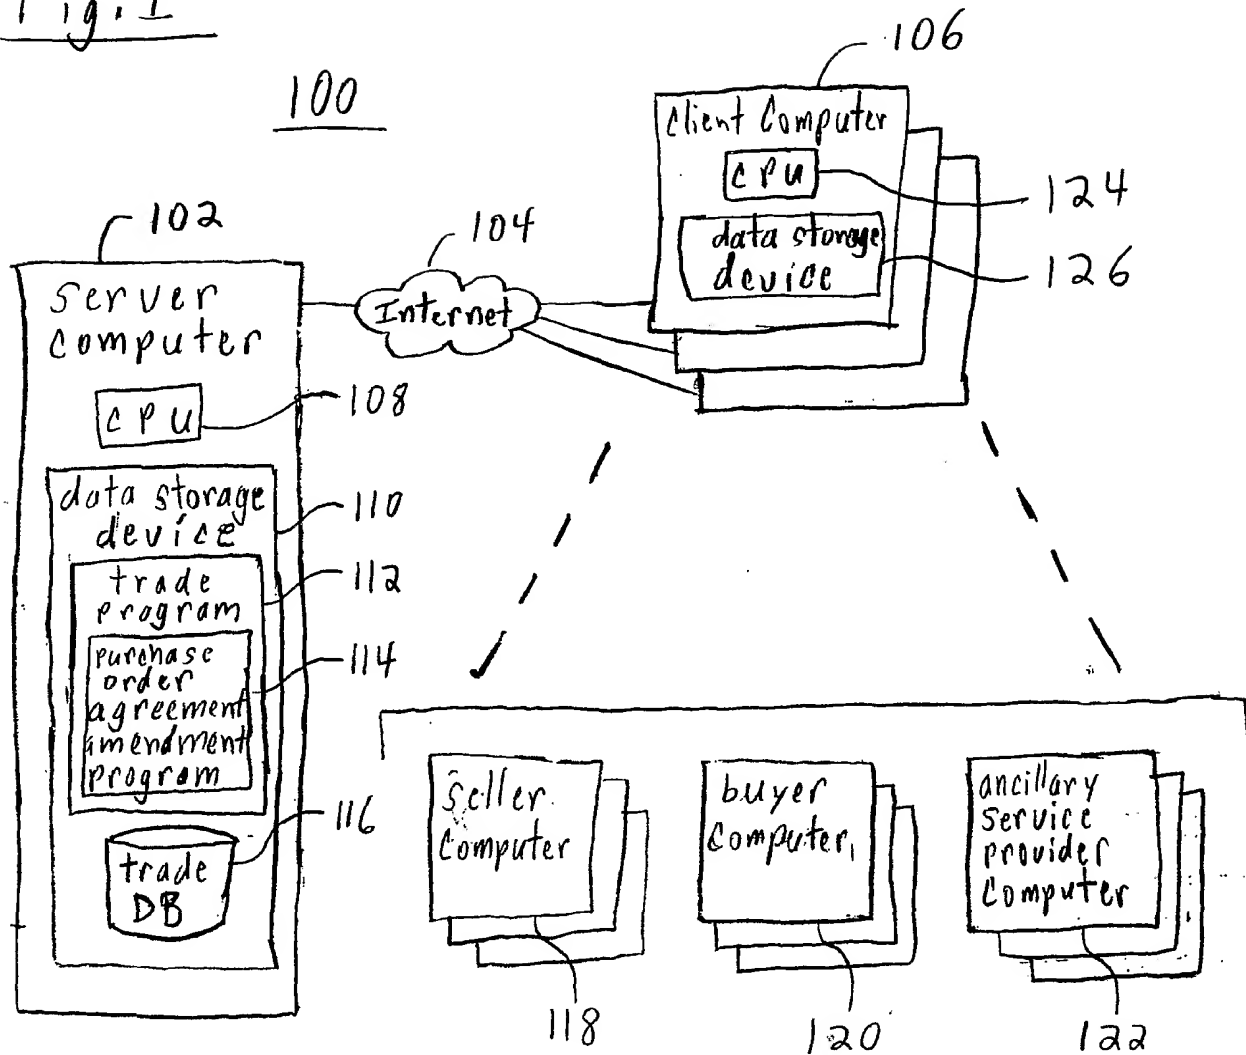 Fig. 1
100
106
Client Computer
CPU
124
data storage
device
126
102
104
Internet
Server
Computer
CPU
108
data storage
device
110
trade
program
112
purchase
order
agreement
amendment
program
114
trade
DB
116
seller
Computer
118
buyer
Computer
120
ancillary
service
provider
Computer
122